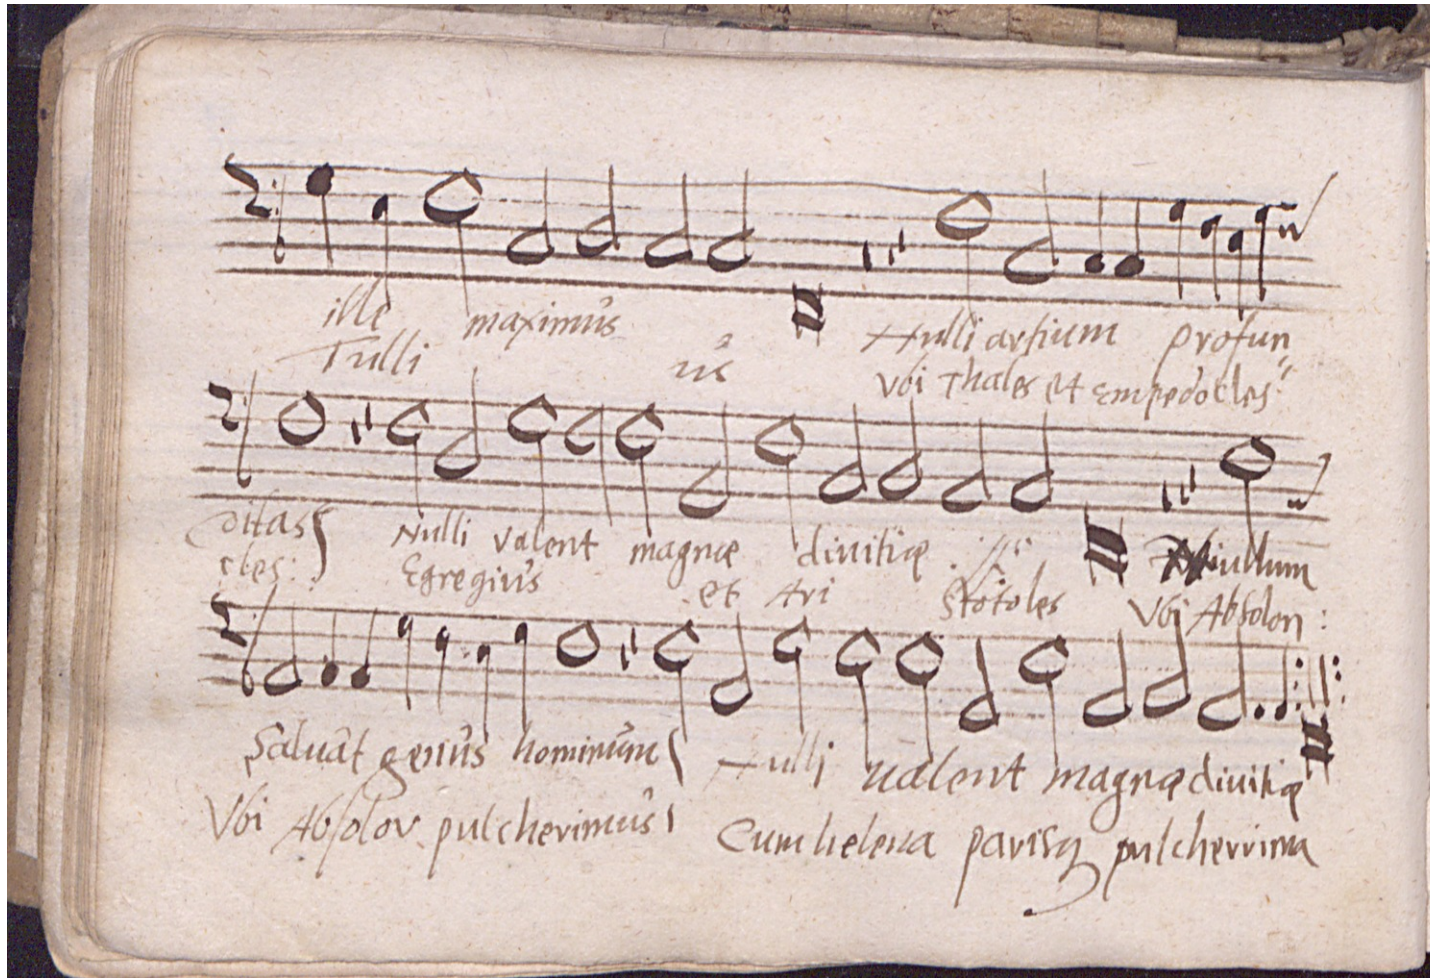 ille maximus
Tulli us
Nulli artium profun
Vbi Thales et Empedocles
ditas Nulli valent magnæ diuitiæ :||: Nullum
cles: Egregius et Ari stotoles Vbi Absolon :
Saluat genus hominum Nulli ualent magnæ diuitiæ
Vbi Absolon pulcherimus Cum helena parisq pulcherrima